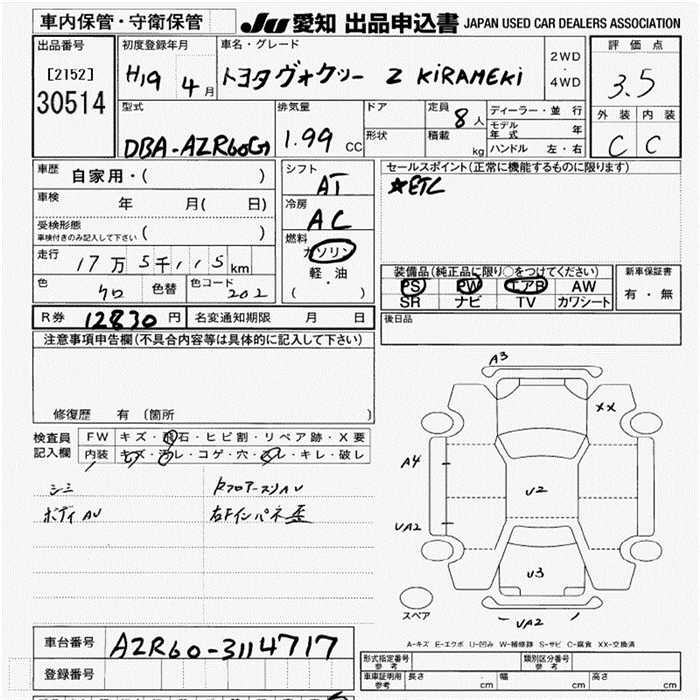 車内保管・守衛保管
JU 愛知 出品申込書 JAPAN USED CAR DEALERS ASSOCIATION
出品番号
[2152]
30514
初度登録年月
H19 4月
車名・グレード
トヨタヴォクシー Z KIRAMEKI
2WD
・
4WD
評価点
3.5
外装 内装
C C
型式
DBA-AZR60G
排気量
1.99 CC
ドア
形状
定員
8人
積載
kg
ディーラー・並行
モデル年式 年
ハンドル 左・右
車歴
自家用・( )
車検
年 月( 日)
受検形態
車検付きのみ記入して下さい ( )
走行
17万5千115km
色
クロ
色替
色コード
202
シフト
AT
冷房
AC
燃料
ガソリン
軽・油
( ・ )
セールスポイント(正常に機能するものに限ります)
☆ETC
装備品(純正品に限り○をつけてください)
PS PW エアB AW
SR ナビ TV カワシート
新車保証書
有・無
R券 12830円 名変通知期限 月 日
後日品
注意事項申告欄(不具合内容等は具体的に記入して下さい)
修復歴 有 (箇所 )
検査員記入欄
FW キズ・飛石・ヒビ割・リペア跡・X要
内装 キズ・汚レ・コゲ・穴・スレ・キレ・破レ
シミ
ボディAU
右Fインパネ歪
A3
XX
A4
U2
UA2
U3
UA2
スペア
A-キズ E-エクボ U-凹み W-補修跡 S-サビ C-腐食 XX-交換済
車台番号 AZR60-3114717
登録番号
形式指定番号
参考
類別区分番号
参考
車車証明用
参考
長さ cm
幅 cm
高さ cm